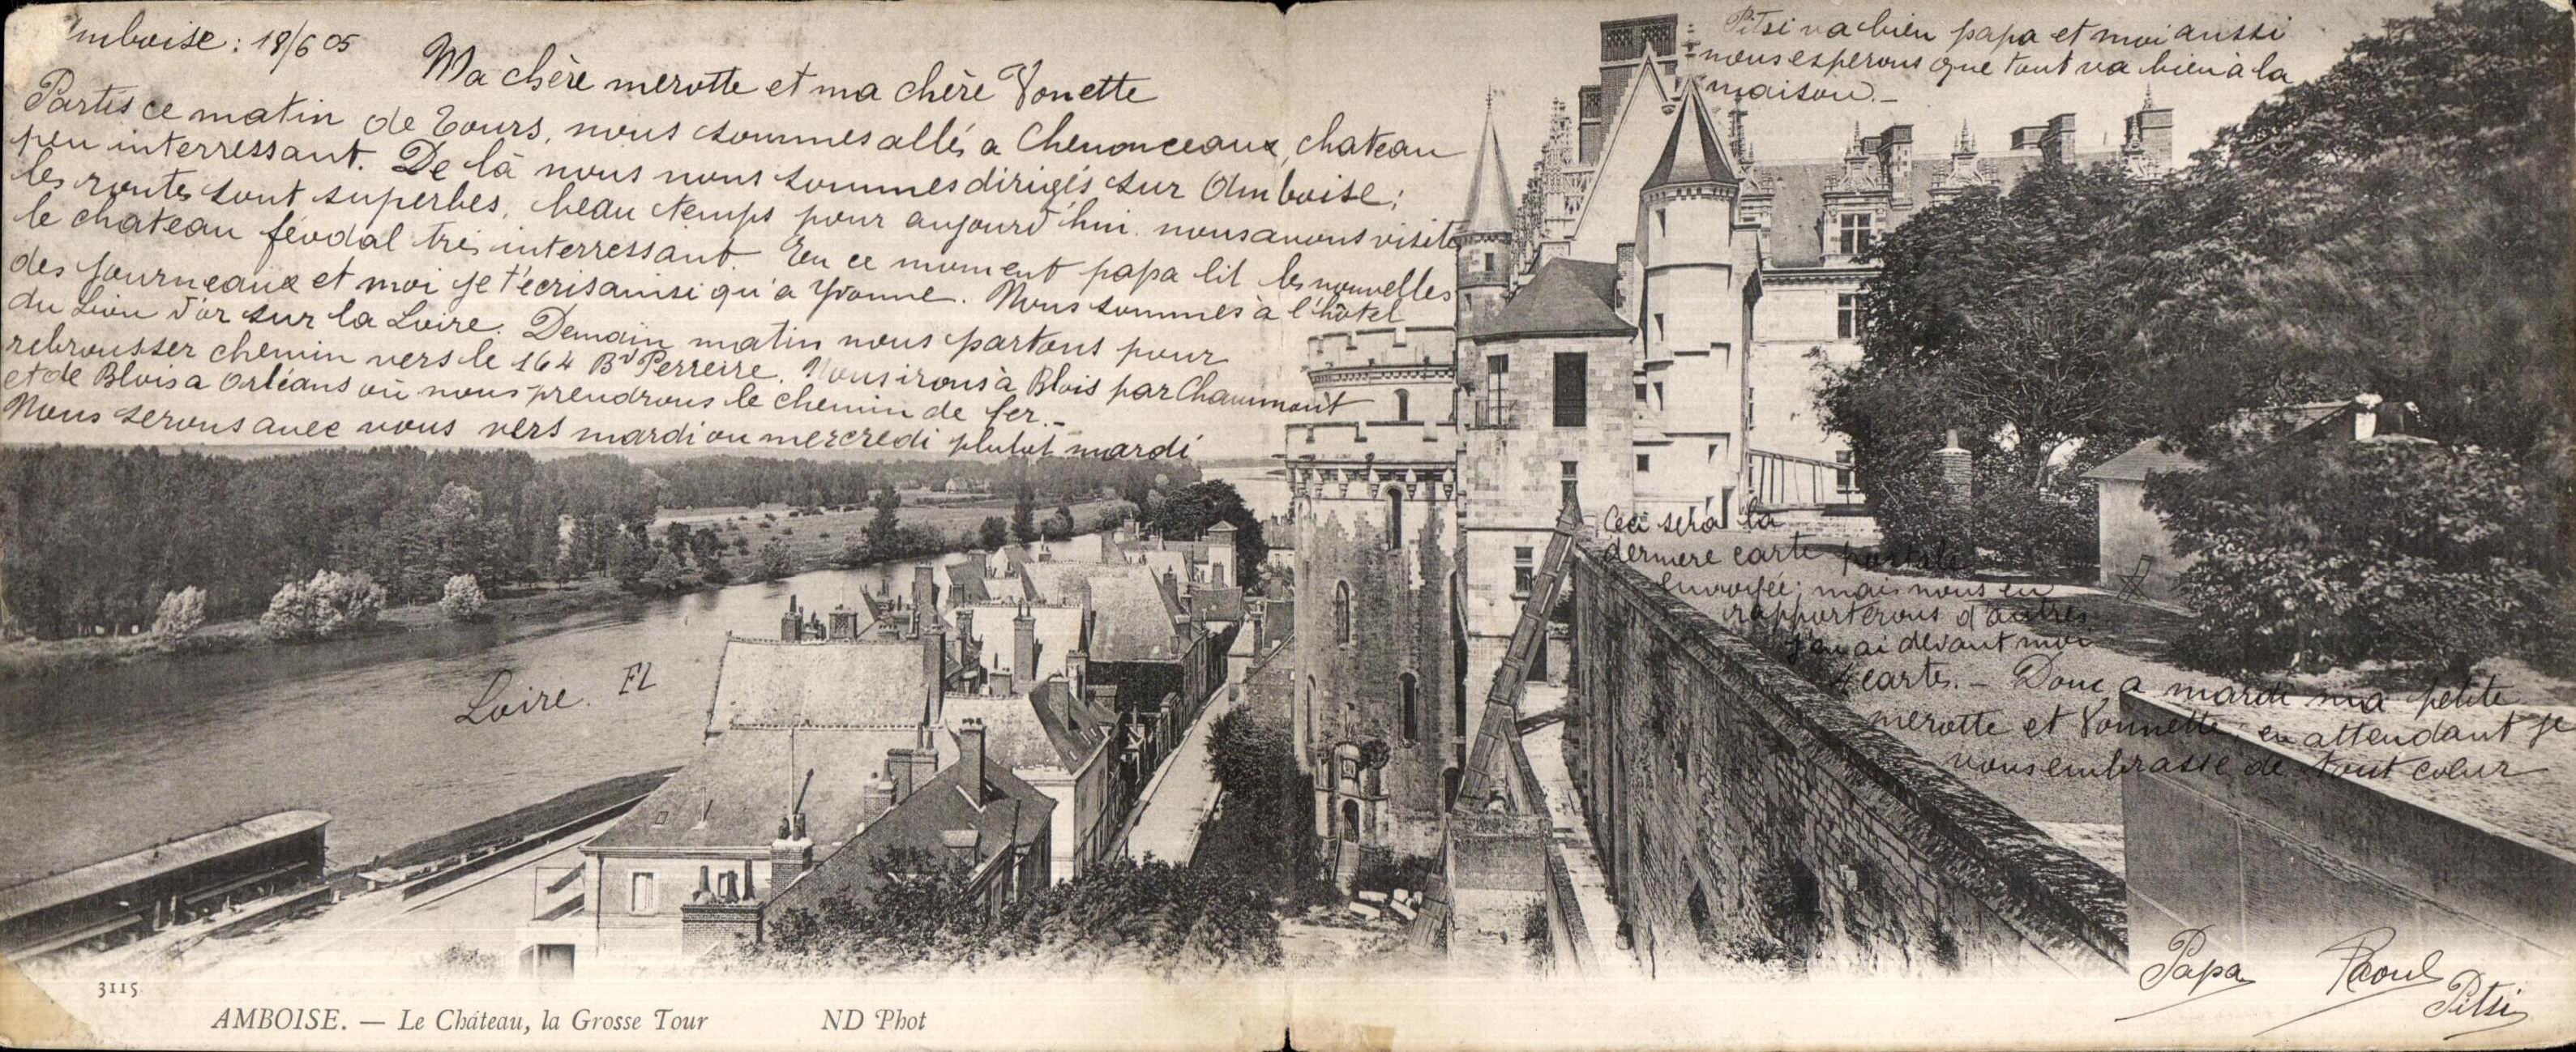 Amboise : 18/6 05
Ma chère merotte et ma chère Vonette
Partis ce matin de Tours, nous sommes allés a Chenonceaux, chateau
peu interressant. De là nous nous sommes dirigés sur Amboise ;
les routes sont superbes, beau temps pour aujourd'hui. nous avons visité
le chateau féodal très interressant. En ce moment papa lit les nouvelles
des journeaux et moi je t'écris ainsi qu'a Yvonne. Nous sommes à l'hôtel
du Lion d'or sur la Loire. Demain matin nous partons pour
rebrousser chemin vers le 164 Bd Perreire. Nous irons à Blois par Chaumont
et de Blois a Orléans où nous prendrons le chemin de fer.-
Nous serons avec vous vers mardi ou mercredi plutot mardi
Pitsi va bien papa et moi aussi
nous esperons que tout va bien à la
maison.-
Ceci sera la
dernere carte postale
envoyée ; mais nous en
rapporterons d'autres
j'en ai devant moi
4 cartes. - Donc a mardi ma petite
merotte et Vonnette ; en attendant je
vous embrasse de tout coeur
Loire. FL
Papa Raoul
Pitsi
3115
AMBOISE. — Le Château, la Grosse Tour ND Phot